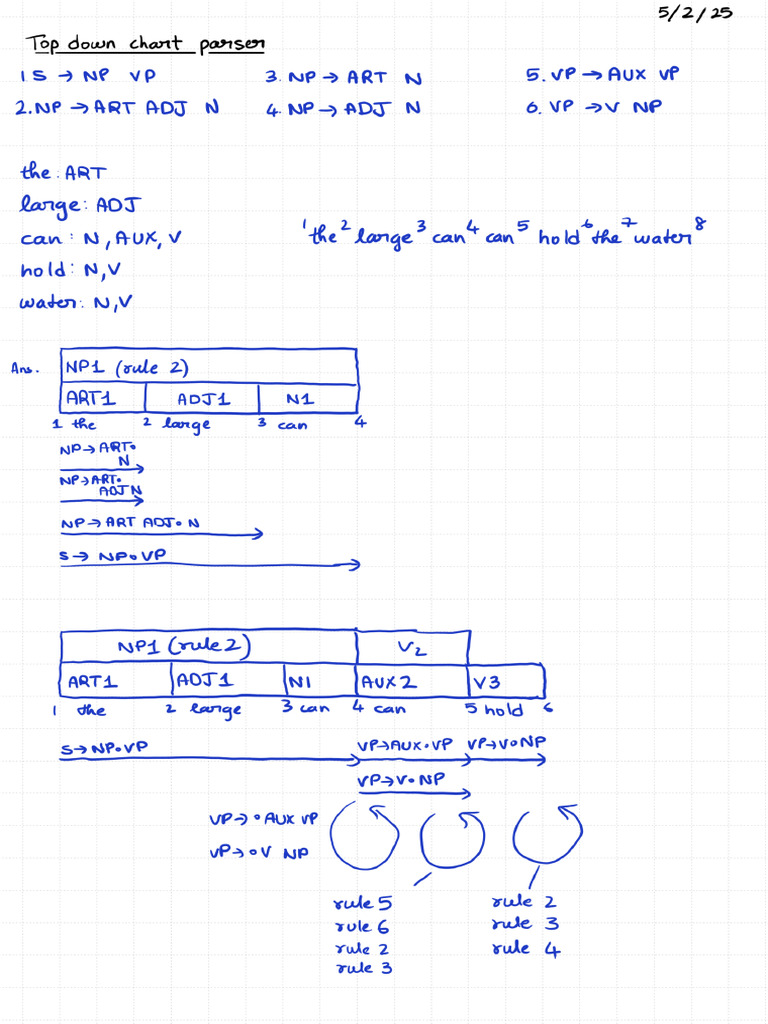 5/2/25
Top down chart parser
1 S → NP VP 3. NP → ART N 5. VP → AUX VP
2. NP → ART ADJ N 4. NP → ADJ N 6. VP → V NP
the: ART
large: ADJ
can: N, AUX, V
1 the 2 large 3 can 4 can 5 hold 6 the 7 water 8
hold: N, V
water: N, V
Ans.
NP1 (rule 2)
ART1 ADJ1 N1
1 the 2 large 3 can 4
NP → ART•
N
NP → ART•
ADJ N
NP → ART ADJ • N
S → NP • VP
NP1 (rule 2) V2
ART1 ADJ1 N1 AUX2 V3
1 the 2 large 3 can 4 can 5 hold 6
S → NP • VP VP → AUX • VP VP → V • NP
VP → V • NP
VP → • AUX VP
VP → • V NP
rule 5 rule 2
rule 6 rule 3
rule 2 rule 4
rule 3